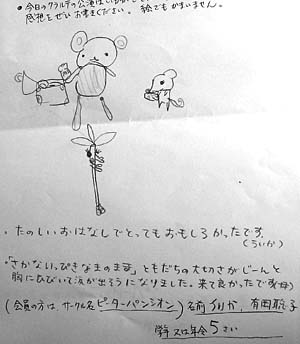 • 今日のクラルテの公演はいかが
感想をぜひお書きください。絵でもかまいません。
・たのしいおはなしでとってもおもしろかったです。
(ちいか)
・「さかないっぴきなまのまま」ともだちの大切さがじーんと
胸にひびいて涙が出そうになりました。来て良かったです(母)
(会員の方は、サークル名 ピーターパンシオン) 名前 ちいか、有岡
学年又は年令 5さい